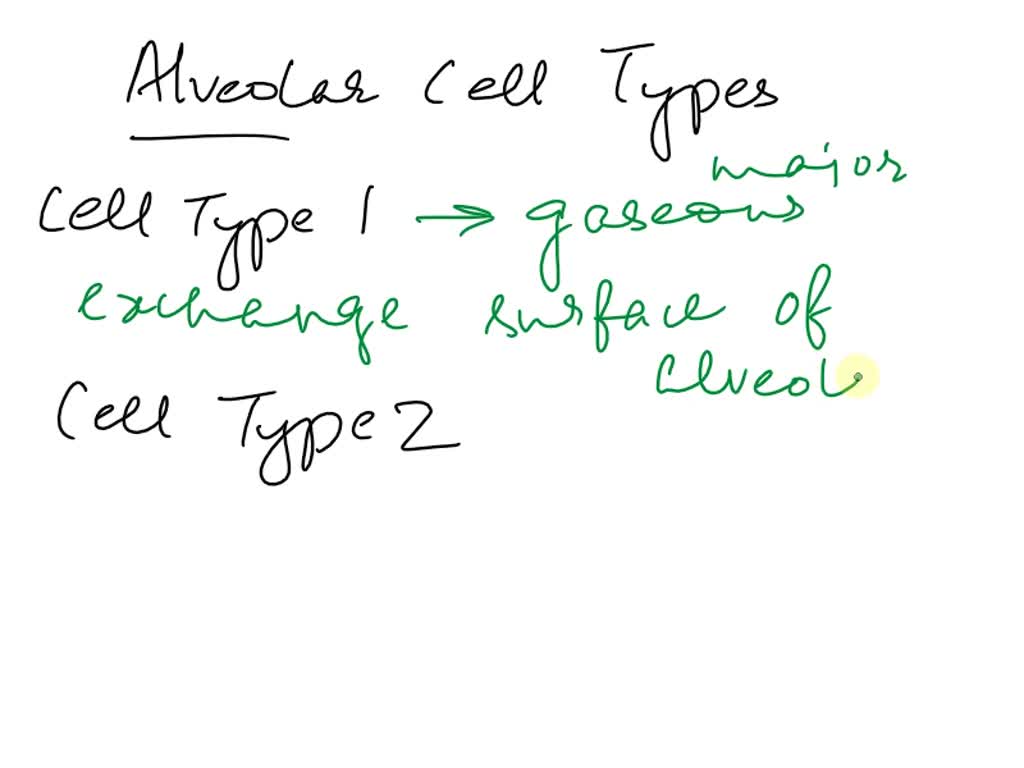 Alveolar Cell Types
Cell Type 1 → major gaseous
exchange surface of
alveol
Cell Type 2